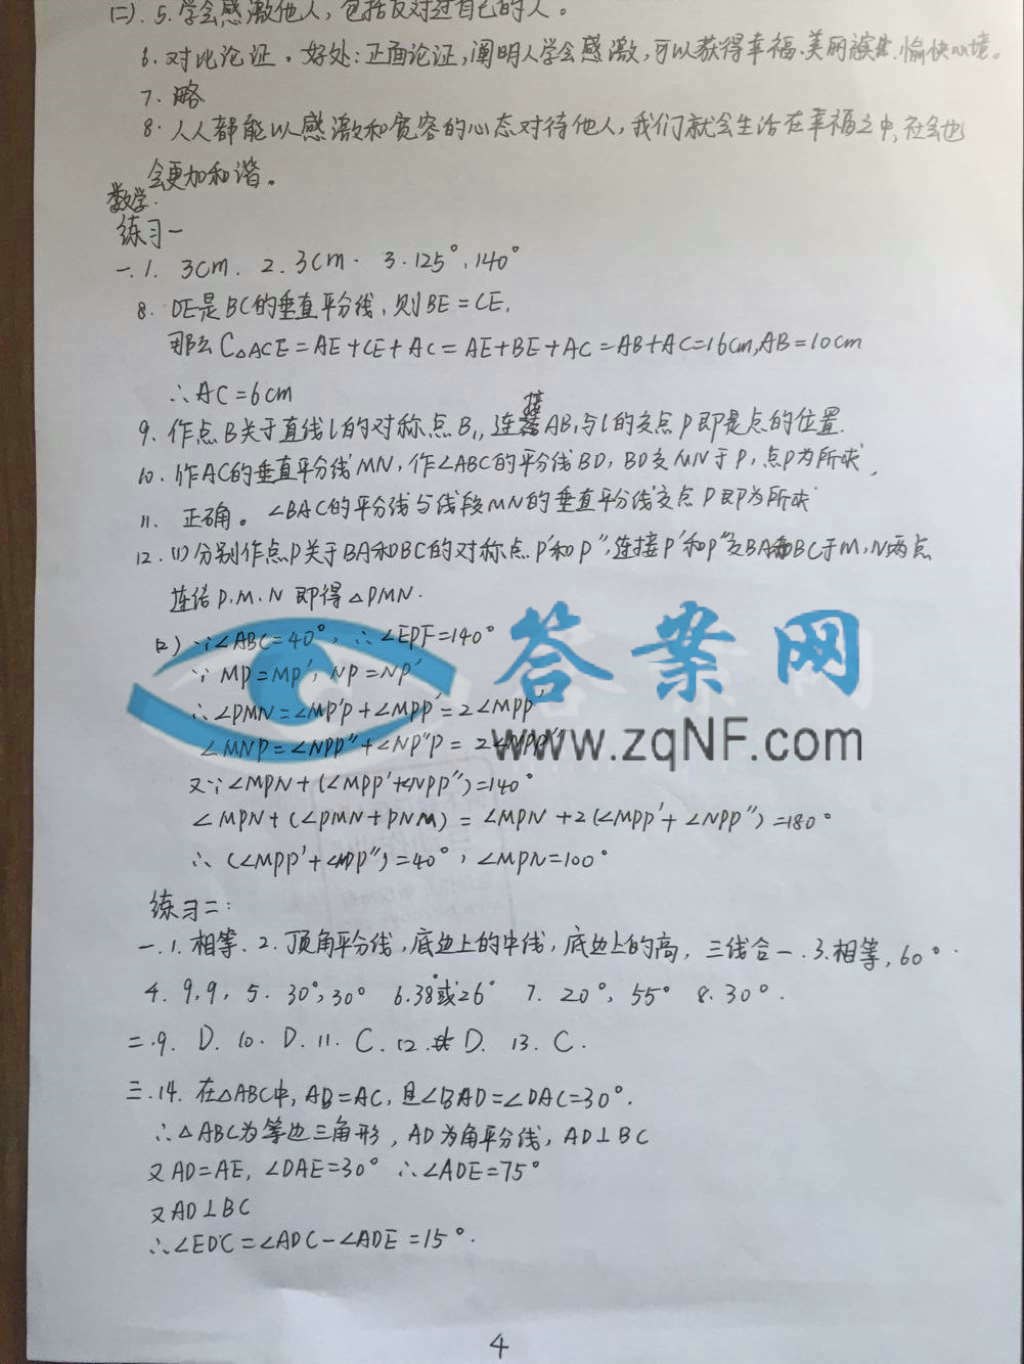 (二).5.学会感激他人,包括反对过自己的人。
6.对比论证。好处:正面论证,阐明人学会感激,可以获得幸福、美丽、愉快心境。
7.略
8.人人都能以感激和宽容的心态对待他人,我们就会生活在幸福之中,社会也
会更加和谐。
数学.
练习一
一.1. 3cm. 2. 3cm. 3. 125°、140°
8. DE是BC的垂直平分线,则BE=CE,
那么C△ACE=AE+CE+AC=AE+BE+AC=AB+AC=16cm,AB=10cm
∴AC=6cm
9.作点B关于直线l的对称点B₁,连接AB₁与l的交点P即是点的位置.
10.作AC的垂直平分线MN,作∠ABC的平分线BD,BD交MN于P,点P为所求.
11. 正确。∠BAC的平分线与线段MN的垂直平分线交点P即为所求
12.(1)分别作点P关于BA和BC的对称点P′和P″,连接P′和P″交BA和BC于M,N两点
连结P.M.N即得△PMN.
(2)∵∠ABC=40°,∴∠EPF=140°
∵MP=MP′,NP=NP′
∴∠PMN=∠MP′P+∠MPP′=2∠MPP′
∠MNP=∠NPP″+∠NP″P=2∠NPP″
又∵∠MPN+(∠MPP′+∠NPP″)=140°
∠MPN+(∠PMN+PNM)=∠MPN+2(∠MPP′+∠NPP″)=180°
∴(∠MPP′+∠NPP″)=40°,∠MPN=100°
答案网
www.zqNF.com
练习二:
一.1.相等.2.顶角平分线,底边上的中线,底边上的高,三线合一.3.相等,60°.
4. 9,9, 5. 30°,30° 6.38°或26° 7. 20°,55° 8. 30°.
二.9. D. 10. D. 11. C. 12. D. 13. C.
三.14.在△ABC中,AB=AC,且∠BAD=∠DAC=30°.
∴△ABC为等边三角形,AD为角平分线,AD⊥BC
又AD=AE,∠DAE=30° ∴∠ADE=75°
又AD⊥BC
∴∠EDC=∠ADC-∠ADE=15°.
4